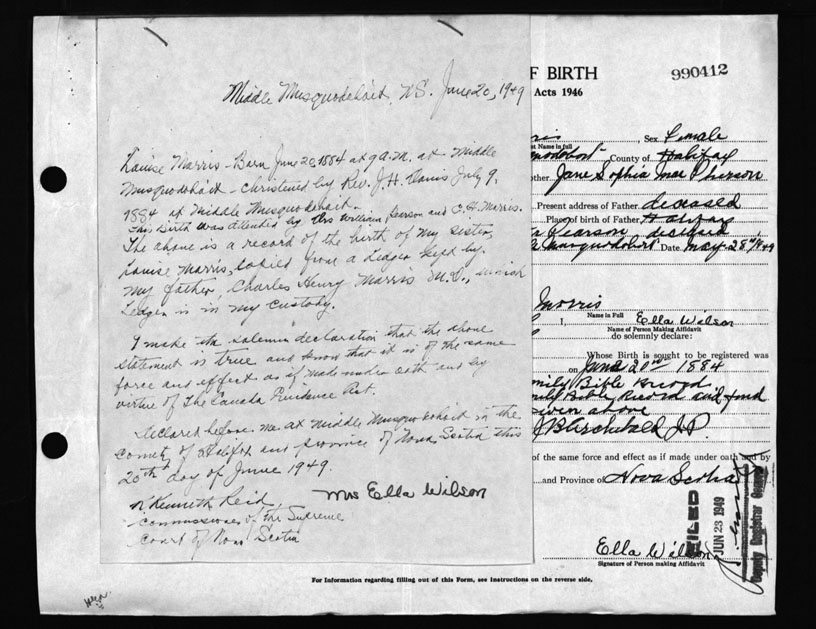 Middle Musquodoboit, N.S. June 20, 1949
Louise Morris - Born June 20, 1884 at 9 A.M. at Middle
Musquodoboit - christened by Rev. J. H. Davis July 9,
1884 at Middle Musquodoboit.
This Birth was attended by Mrs William Pearson and C. H. Morris.
The above is a record of the birth of my sister,
Louise Morris, copied from a Ledger kept by
my father, Charles Henry Morris M.D., which
Ledger is in my custody.
I make this solemn declaration that the above
statement is true and know that it is of the same
force and effect as if made under oath and by
virtue of The Canada Evidence Act.
Declared before me at Middle Musquodoboit in the
County of Halifax and province of Nova Scotia this
20th day of June 1949.
Mrs Ella Wilson
Kenneth Reid
Commissioner of the Supreme
Court of Nova Scotia
F BIRTH
990412
Acts 1946
, Sex Female
County of Halifax
other Jane Sophia
Present address of Father deceased
Place of birth of Father Halifax
Pearson deceased
Date May 28th/49
Morris
Name in Full
I, Ella Wilson
Name of Person Making Affidavit
do solemnly declare:
Whose Birth is sought to be registered was
on June 20th 1884
mily Bible Record
mily Bible Record and
given above
J.P.
of the same force and effect as if made under oath and by
and Province of Nova Scotia
FILED
JUN 23 1949
Deputy Registrar General
Ella Wilson
Signature of Person making Affidavit
For Information regarding filling out of this Form, see Instructions on the reverse side,